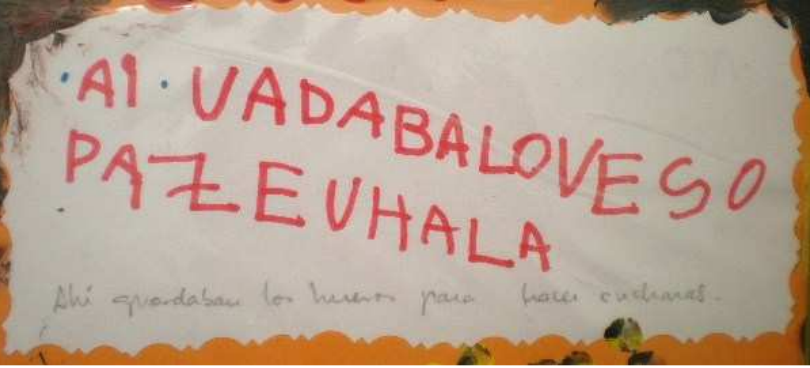 AI UADABALOVESO
PAZEUHALA
Ahí guardaban los huesos para hacer cucharas.